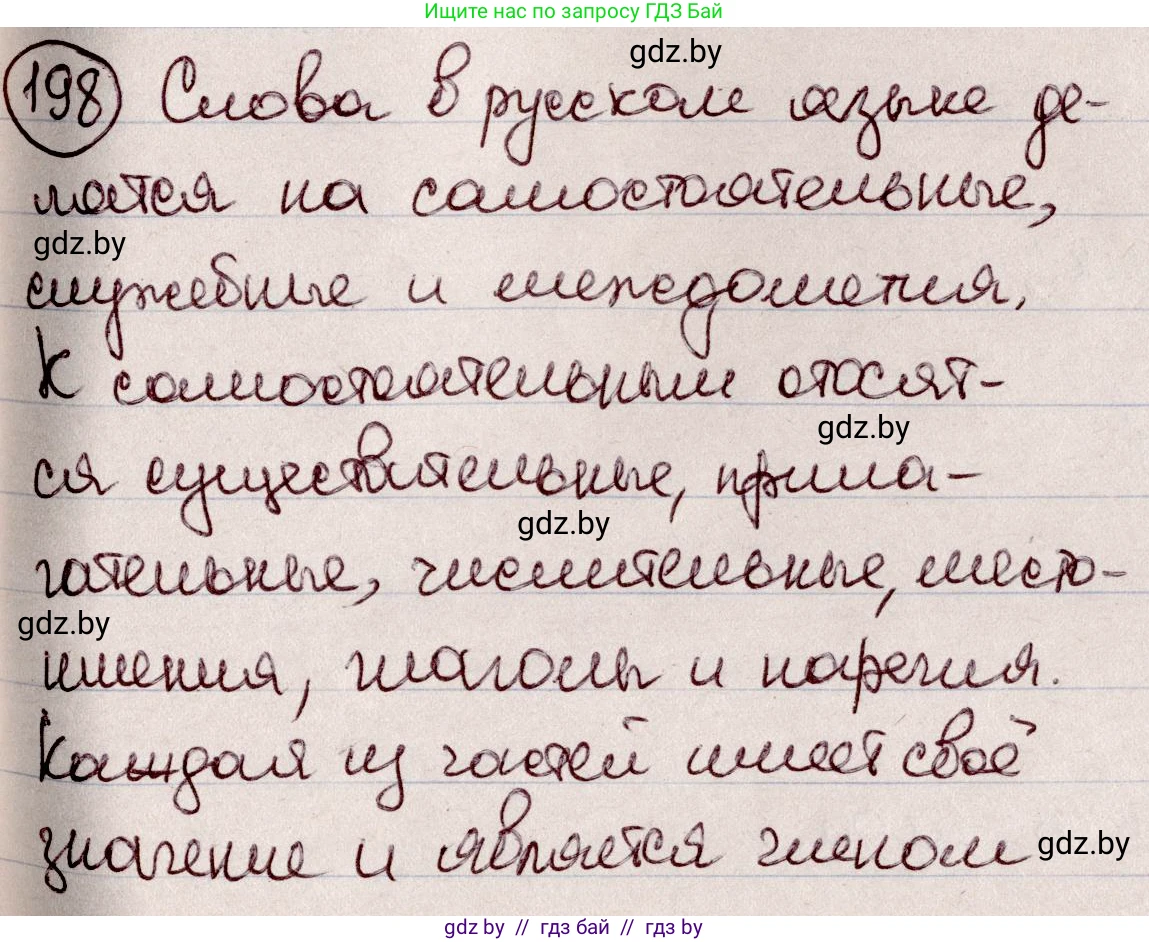 Ищите нас по запросу ГДЗ Бай
gdz.by
198 Слова в русском языке де-
лятся на самостоятельные,
gdz.by
служебные и междометия.
К самостоятельным отосят-
gdz.by
ся существительные, прила-
gdz.by
гательные, числительные, место-
gdz.by
имения, глаголы и наречия.
Каждая из частей имеет своё
значение и является членом
gdz.by
gdz by // гдз бай // гдз by